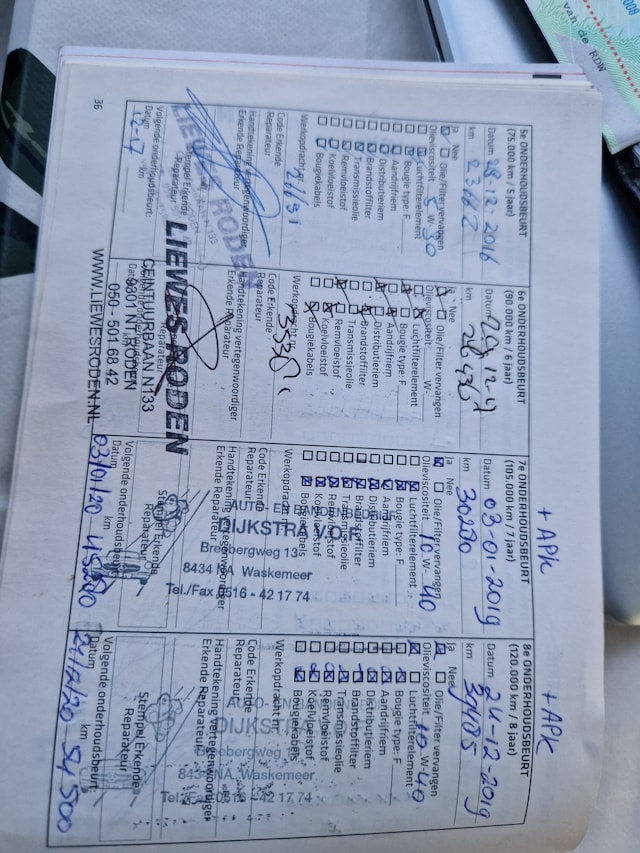 5e ONDERHOUDSBEURT
(75.000 km / 5 jaar)
Datum 28-12-2016
km 23162
Ja Nee
Olie/Filter vervangen
Olieviscositeit: 5 W- 30
Luchtfilterelement
Bougie type: F
Aandrijfriem
Distributieriem
Brandstoffilter
Transmissieolie
Remvloeistof
Koelvloeistof
Bougiekabels
Werkopdrachtnr.
Code Erkende
Reparateur
Handtekening vertegenwoordiger
Erkende Reparateur
LIEWES RODEN
Stempel Erkende
Reparateur
Volgende onderhoudsbeurt:
Datum km
12-17
36
6e ONDERHOUDSBEURT
(90.000 km / 6 jaar)
Datum
km
Ja Nee
Olie/Filter vervangen
Olieviscositeit: W-
Luchtfilterelement
Bougie type: F
Aandrijfriem
Distributieriem
Brandstoffilter
Transmissieolie
Remvloeistof
Koelvloeistof
Bougiekabels
Werkopdrachtnr.
Code Erkende
Reparateur
Handtekening vertegenwoordiger
Erkende Reparateur
LIEWES RODEN
CEINTUURBAAN N133
9301 NT RODEN
050 - 501 68 42
WWW.LIEWESRODEN.NL
+ APK
7e ONDERHOUDSBEURT
(105.000 km / 7 jaar)
Datum 03-01-2019
km 30290
Ja Nee
Olie/Filter vervangen
Olieviscositeit 10 W- 40
Luchtfilterelement
Bougie type: F
Aandrijfriem
Distributieriem
Brandstoffilter
Transmissieolie
Remvloeistof
Koelvloeistof
Bougiekabels
Werkopdracht
Code Erkende
Reparateur
Handtekening vertegenwoordiger
Erkende Reparateur
DIJKSTRA
Brebergweg 13
8434 NA Waskemeer
Tel./Fax 0516 - 42 17 74
Stempel Erkende
Reparateur
Volgende onderhoudsbeurt
Datum km
03/01/20 45290
+ APK
8e ONDERHOUDSBEURT
(120.000 km / 8 jaar)
Datum 24-12-2019
km
Ja Nee
Olie/Filter vervangen
Olieviscositeit 10 W- 40
Luchtfilterelement
Bougie type: F
Aandrijfriem
Distributieriem
Brandstoffilter
Transmissieolie
Remvloeistof
Koelvloeistof
Bougiekabels
Werkopdracht
Code Erkende
Reparateur
Handtekening vertegenwoordiger
Erkende Reparateur
DIJKSTRA
Brebergweg
8434 NA Waskemeer
Tel./Fax 0516 - 42 17 74
Stempel Erkende
Reparateur
Volgende onderhoudsbeurt:
Datum km
24/12/20 54500
van de RDW
2008